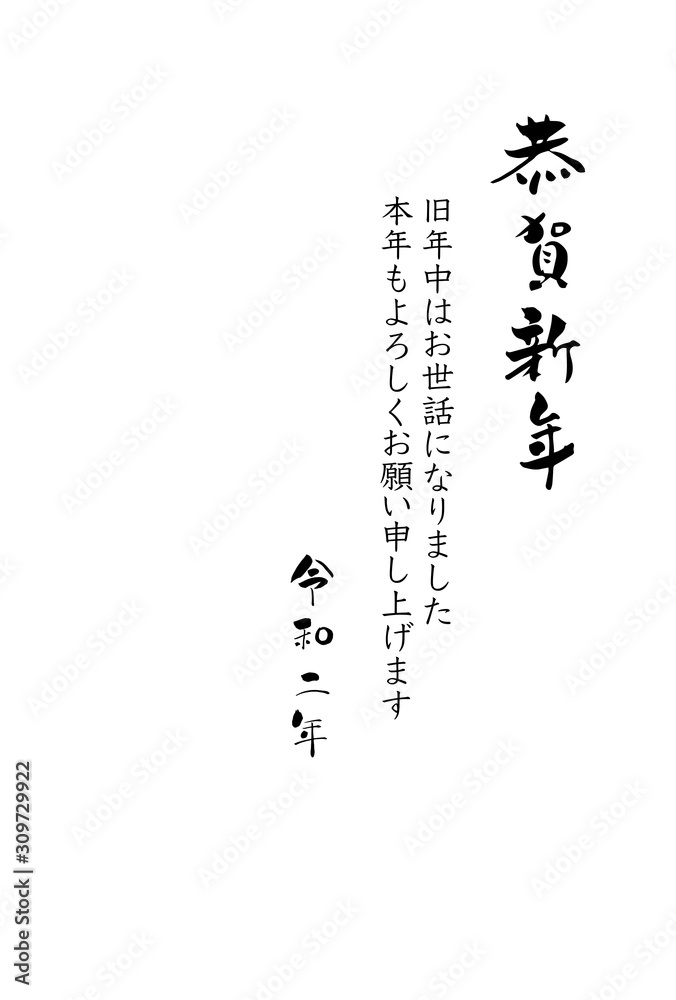 恭賀新年
旧年中はお世話になりました
本年もよろしくお願い申し上げます
令和二年
Adobe Stock | #309729922